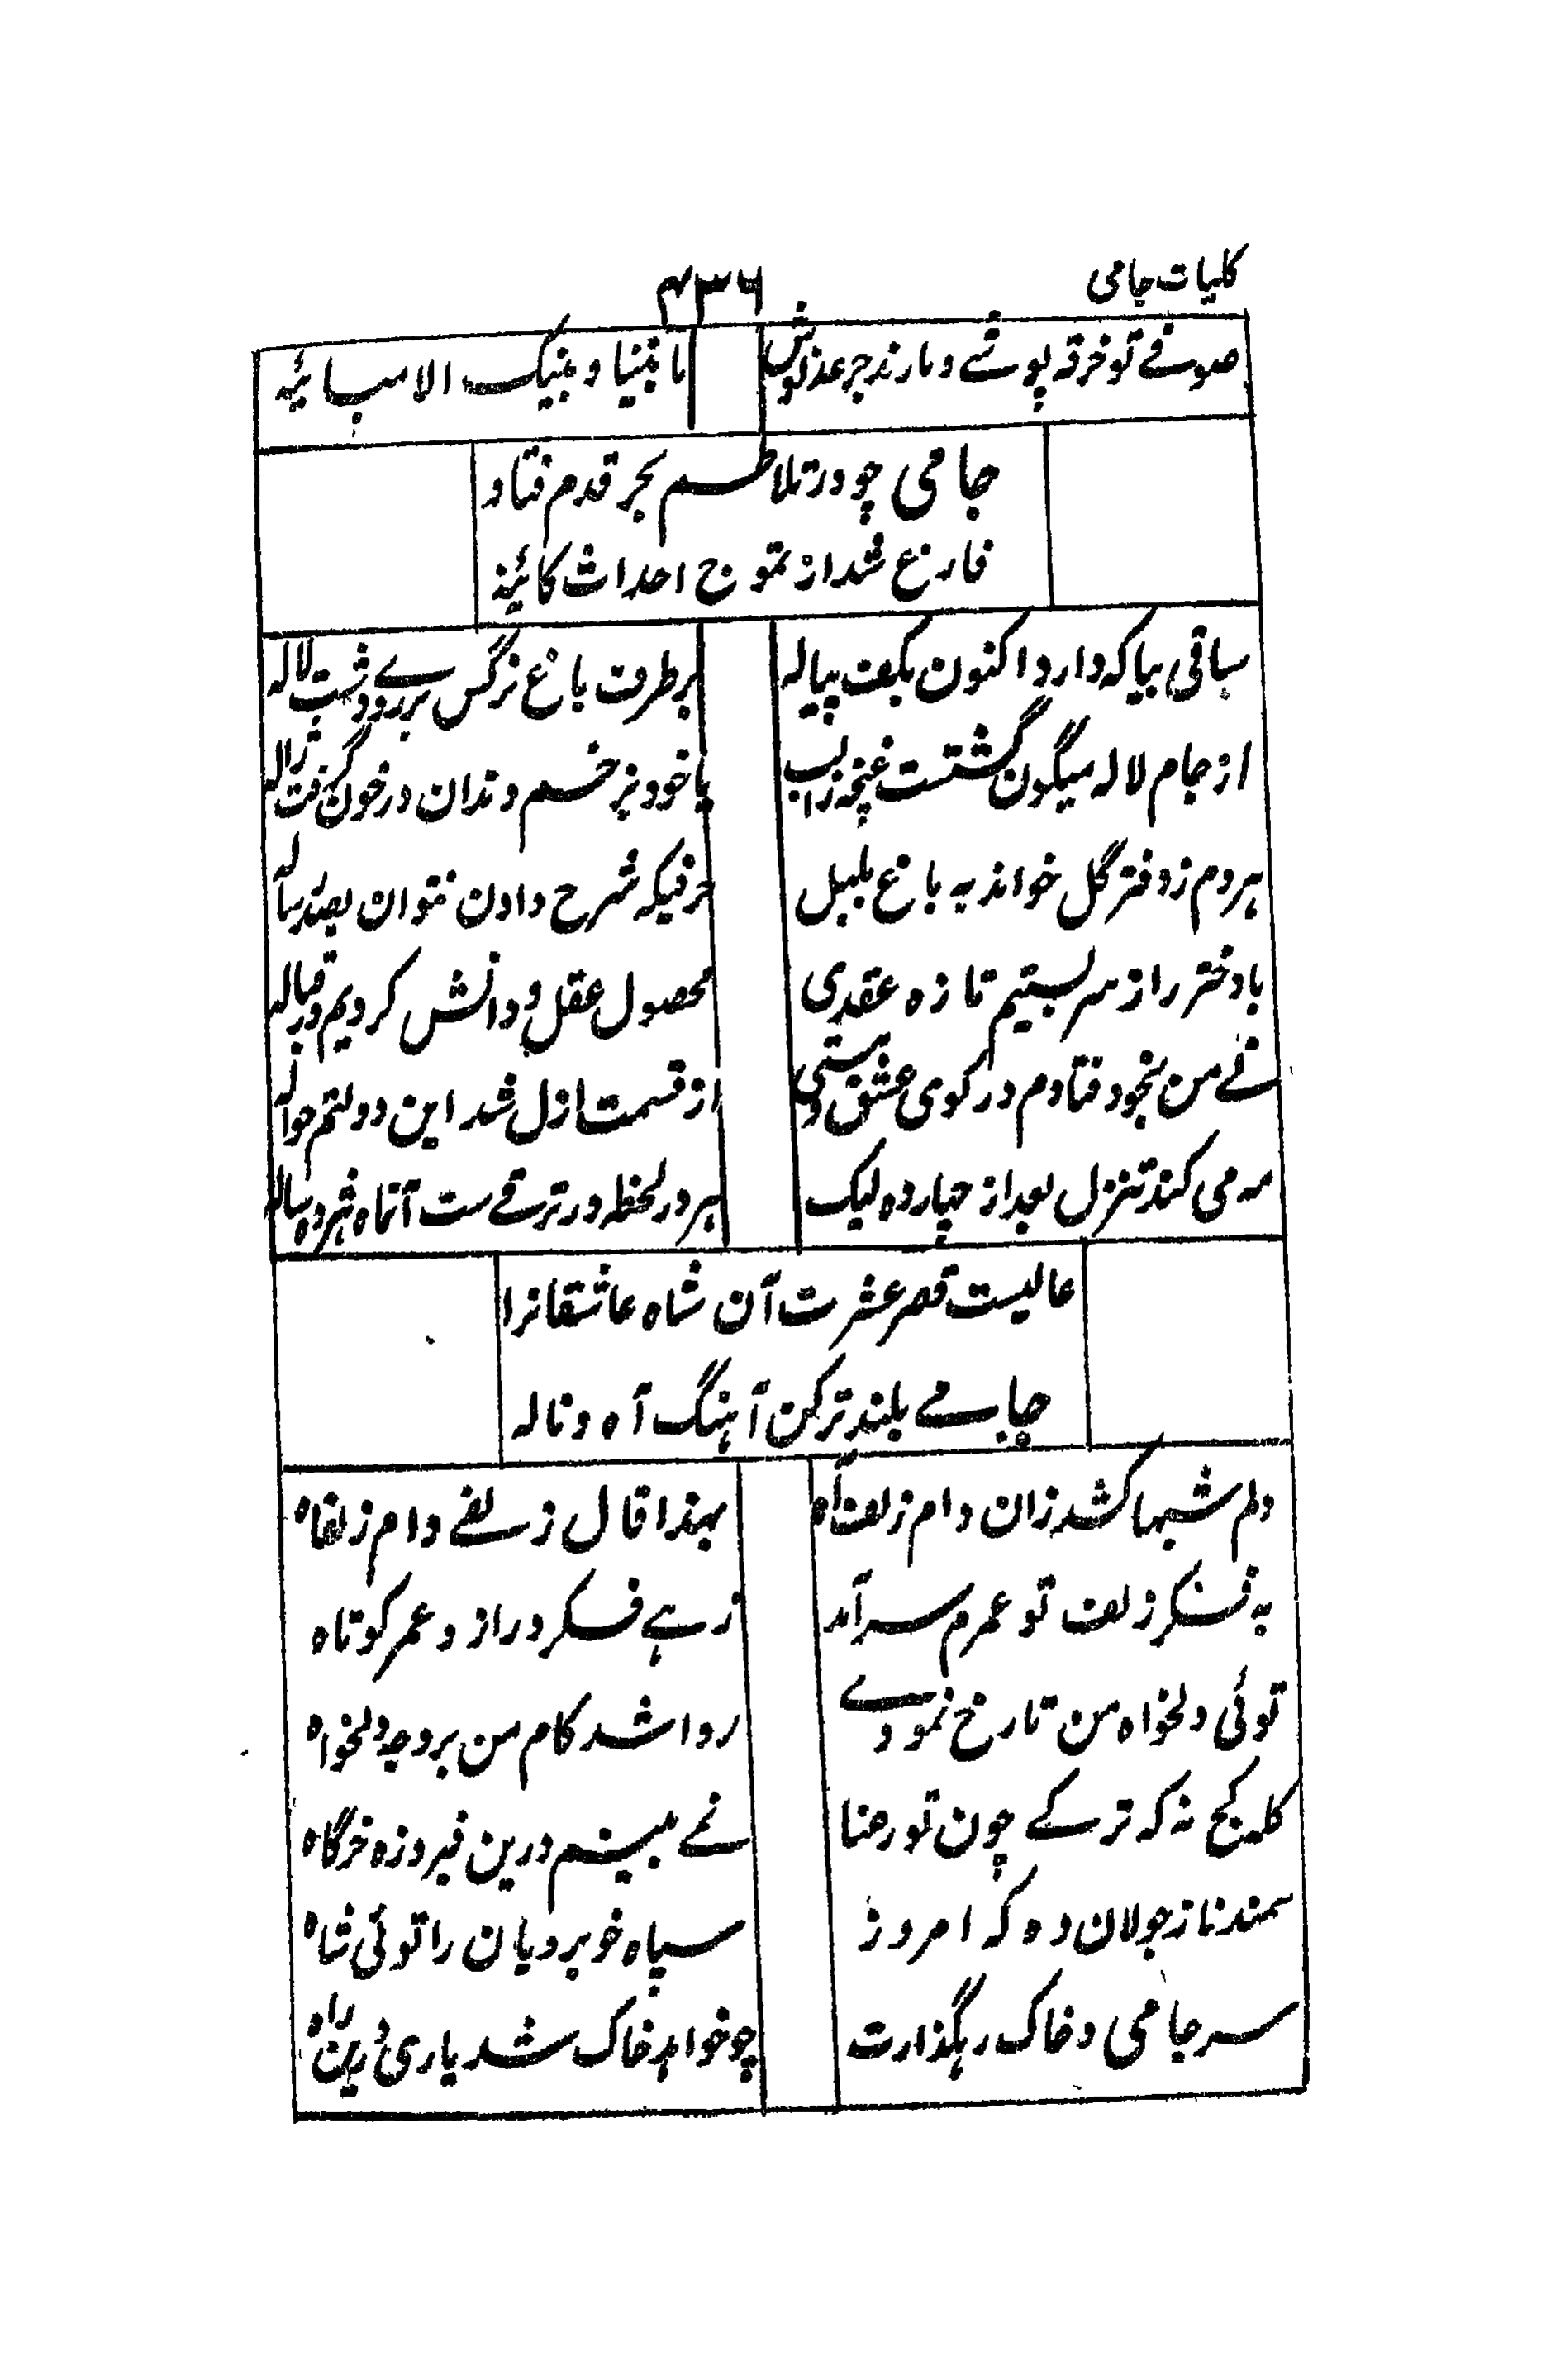 کلیات جامی
۴۳۶
صوفے تو خرقہ پوشے و ما رند جرعہ نوش
ما بیننا و بینک الا مبائنہ
جامی چو در تلاطم بحر قدم فتاد
فارغ شد از تموج احداث کائنہ
ساقی بیا کہ دارد اکنون بکف پیالہ
بر طرف باغ نرگس بر روے دشت لالہ
از جام لالہ میگون گشتست غنچہ را لب
یا خود بزخم دندان در خون گرفت ژالہ
ہر دم ز دفتر گل خواند بہ باغ بلبل
حرفیکہ شرح دادن نتوان بصد رسالہ
با دختر رز از سر بستیم تازہ عقدی
محصول عقل و دانش کردیم در قبالہ
نے من بخود فتادم در کوی عشق و مستی
از قسمت ازل شد این دولتم حوالہ
مہ می کند تنزل بعد از چاردہ لیک
ہر لحظہ در ترقے ست آنماہ دہ سالہ
عالیست قصر عشرت آن شاہ عاشقانرا
جامے بلند تر کن آہنگ آہ و نالہ
دلم شبہا کشد زان دام زلف آہ
بہذا قال زلفے دام زلفاہ
بہ فکر زلف تو عمرم سر آمد
زہے فکر دراز و عمر کوتاہ
توئی دلخواہ من تا رخ نمودے
روا شد کام من بر وجہ دلخواہ
کلہ کج نہ کہ ترکے چون تو رعنا
نمے بینم درین فیروزہ خرگاہ
سمند ناز جولان دہ کہ امروز
سپاہ خوبرویان را توئی شاہ
سر جامی و خاک رہگذارت
چو خواہد خاک شد باری درین راہ